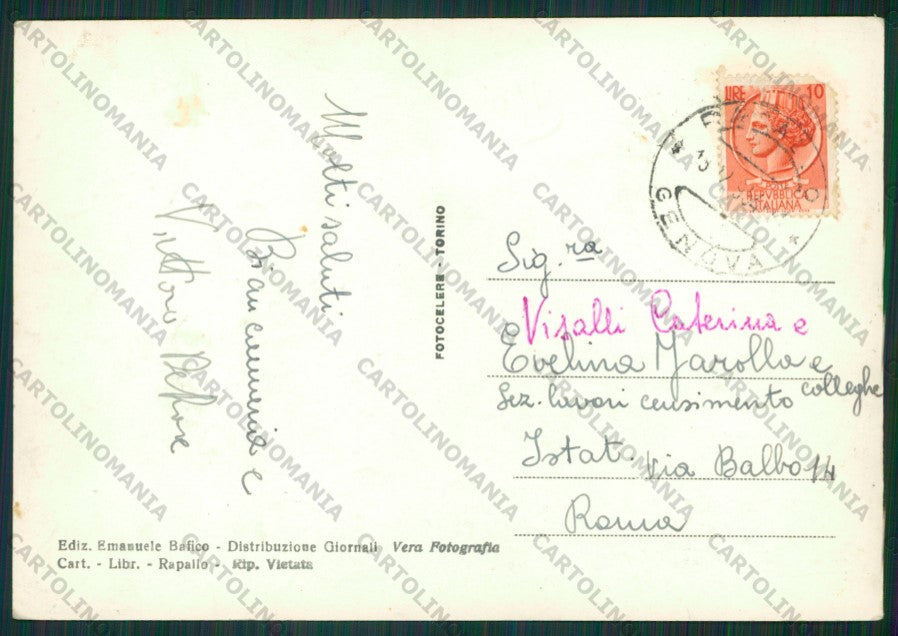 Molti saluti
Biancamaria e
Vittorio
FOTOCELERE - TORINO
LIRE 10
POSTE
REPVBBLICA
ITALIANA
GENOVA
Sig.ra
Visalli Caterina e
Evelina Marolla e
colleghe
Sez. lavori censimento
Istat. Via Balbo 14
Roma
Ediz. Emanuele Bafico - Distribuzione Giornali Vera Fotografia
Cart. - Libr. - Rapallo - Rip. Vietata
CARTOLINOMANIA